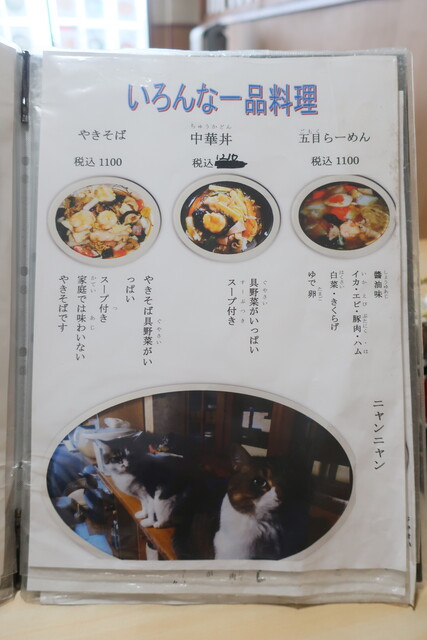 いろんな一品料理
やきそば
税込 1100
中華丼
ちゅうかどん
税込
五目らーめん
税込 1100
醤油味
イカ・エビ・豚肉・ハム
白菜・きくらげ
ゆで卵
具野菜がいっぱい
スープ付き
やきそば具野菜がい
っぱい
スープ付き
家庭では味わいない
やきそばです
ニャンニャン